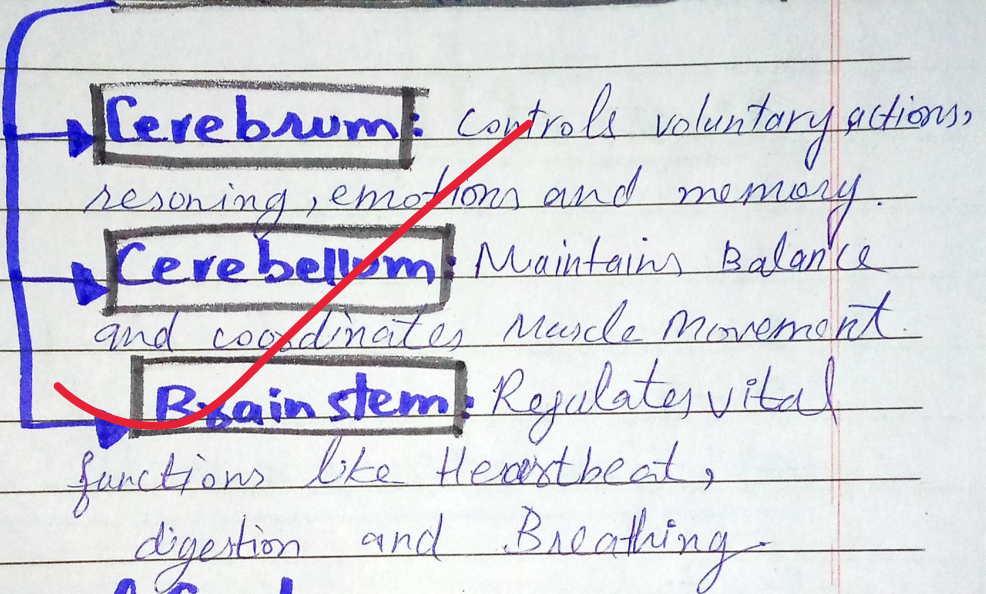 Cerebrum: Controls voluntary actions,
resoning, emotions and memory.
Cerebellum: Maintains Balance
and coordinates Muscle Movement.
Brain stem: Regulates vital
functions like Heartbeat,
digestion and Breathing.